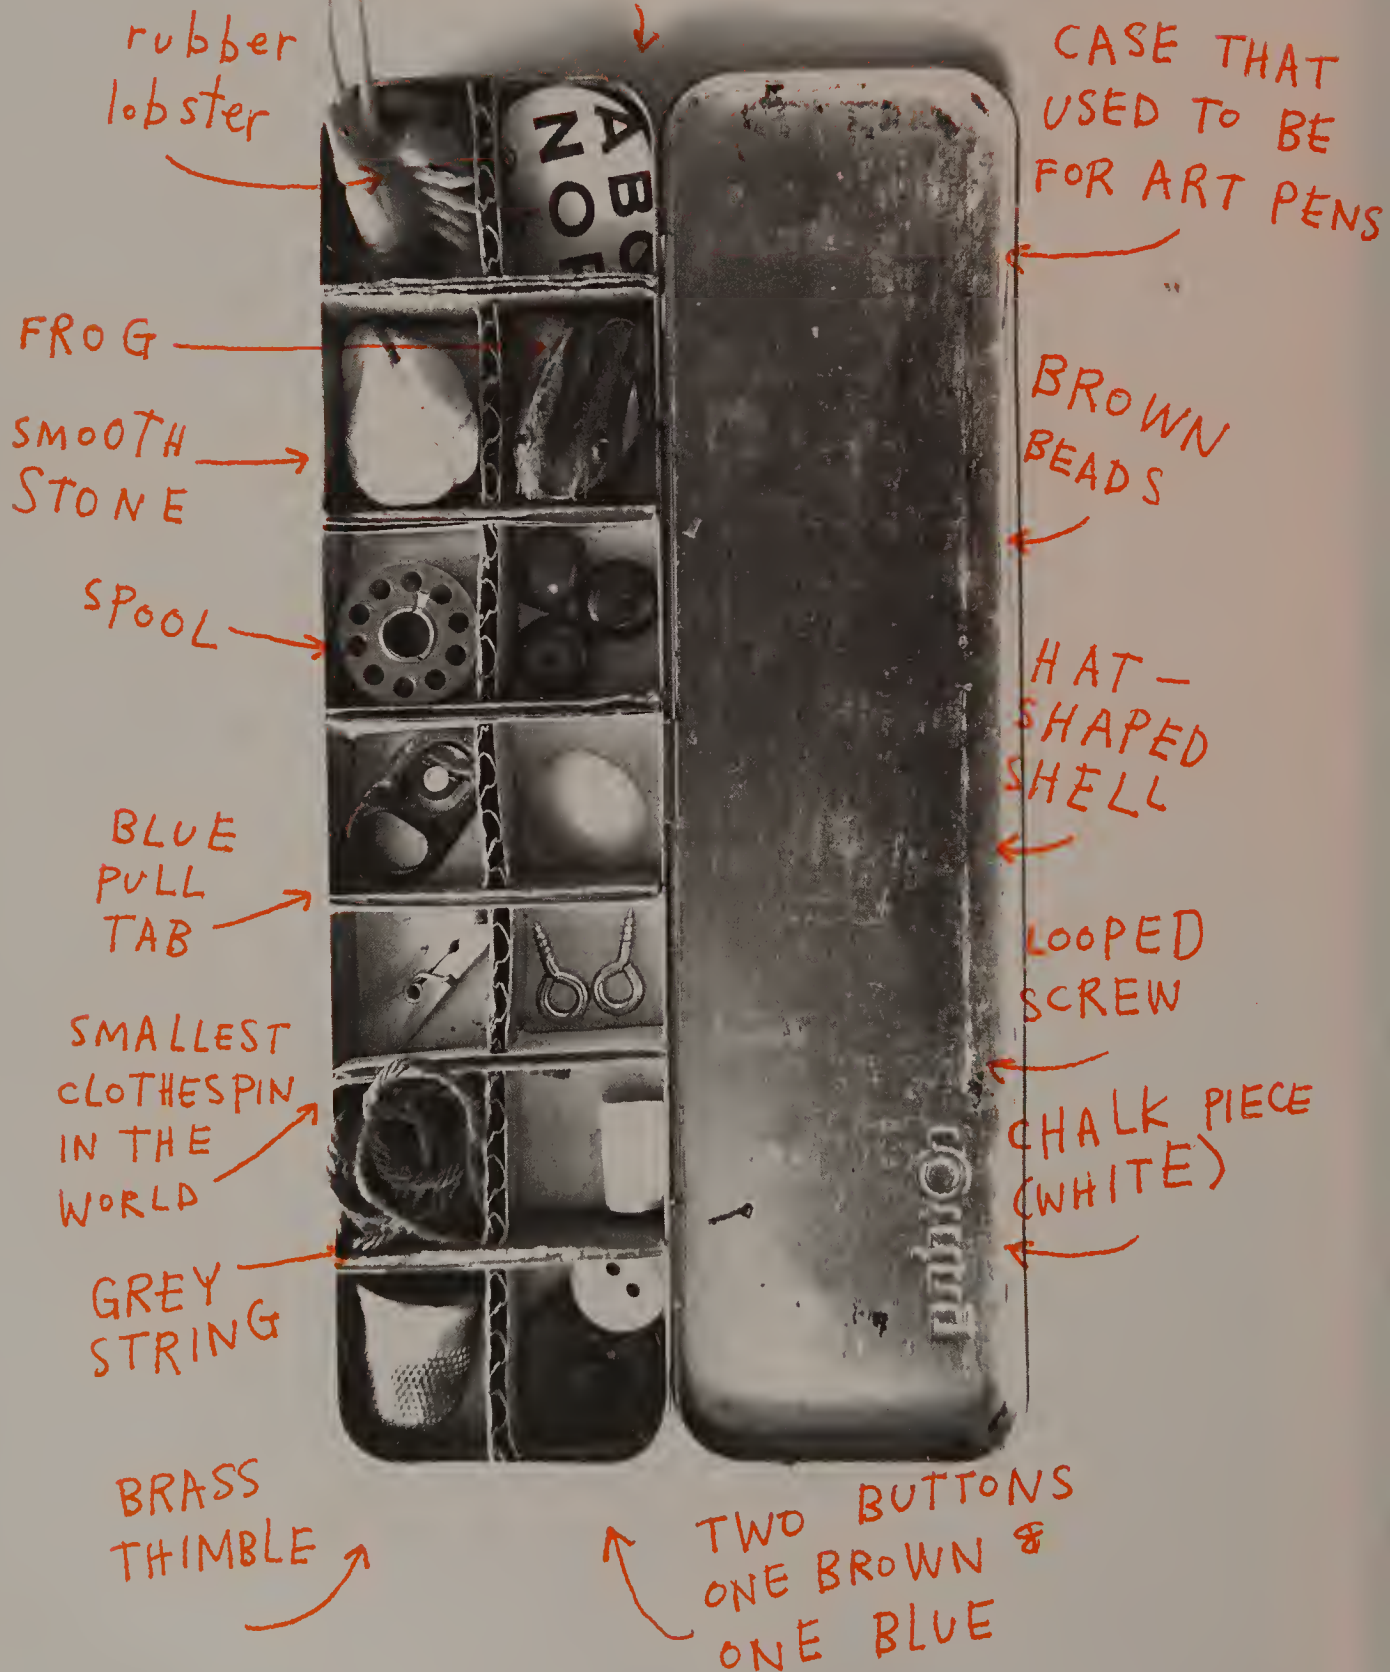 rubber
lobster
CASE THAT
USED TO BE
FOR ART PENS
ABC
NOP
FROG
SMOOTH
STONE
BROWN
BEADS
SPOOL
HAT-
SHAPED
SHELL
BLUE
PULL
TAB
LOOPED
SCREW
SMALLEST
CLOTHESPIN
IN THE
WORLD
CHALK PIECE
(WHITE)
GREY
STRING
BRASS
THIMBLE
TWO BUTTONS
ONE BROWN &
ONE BLUE